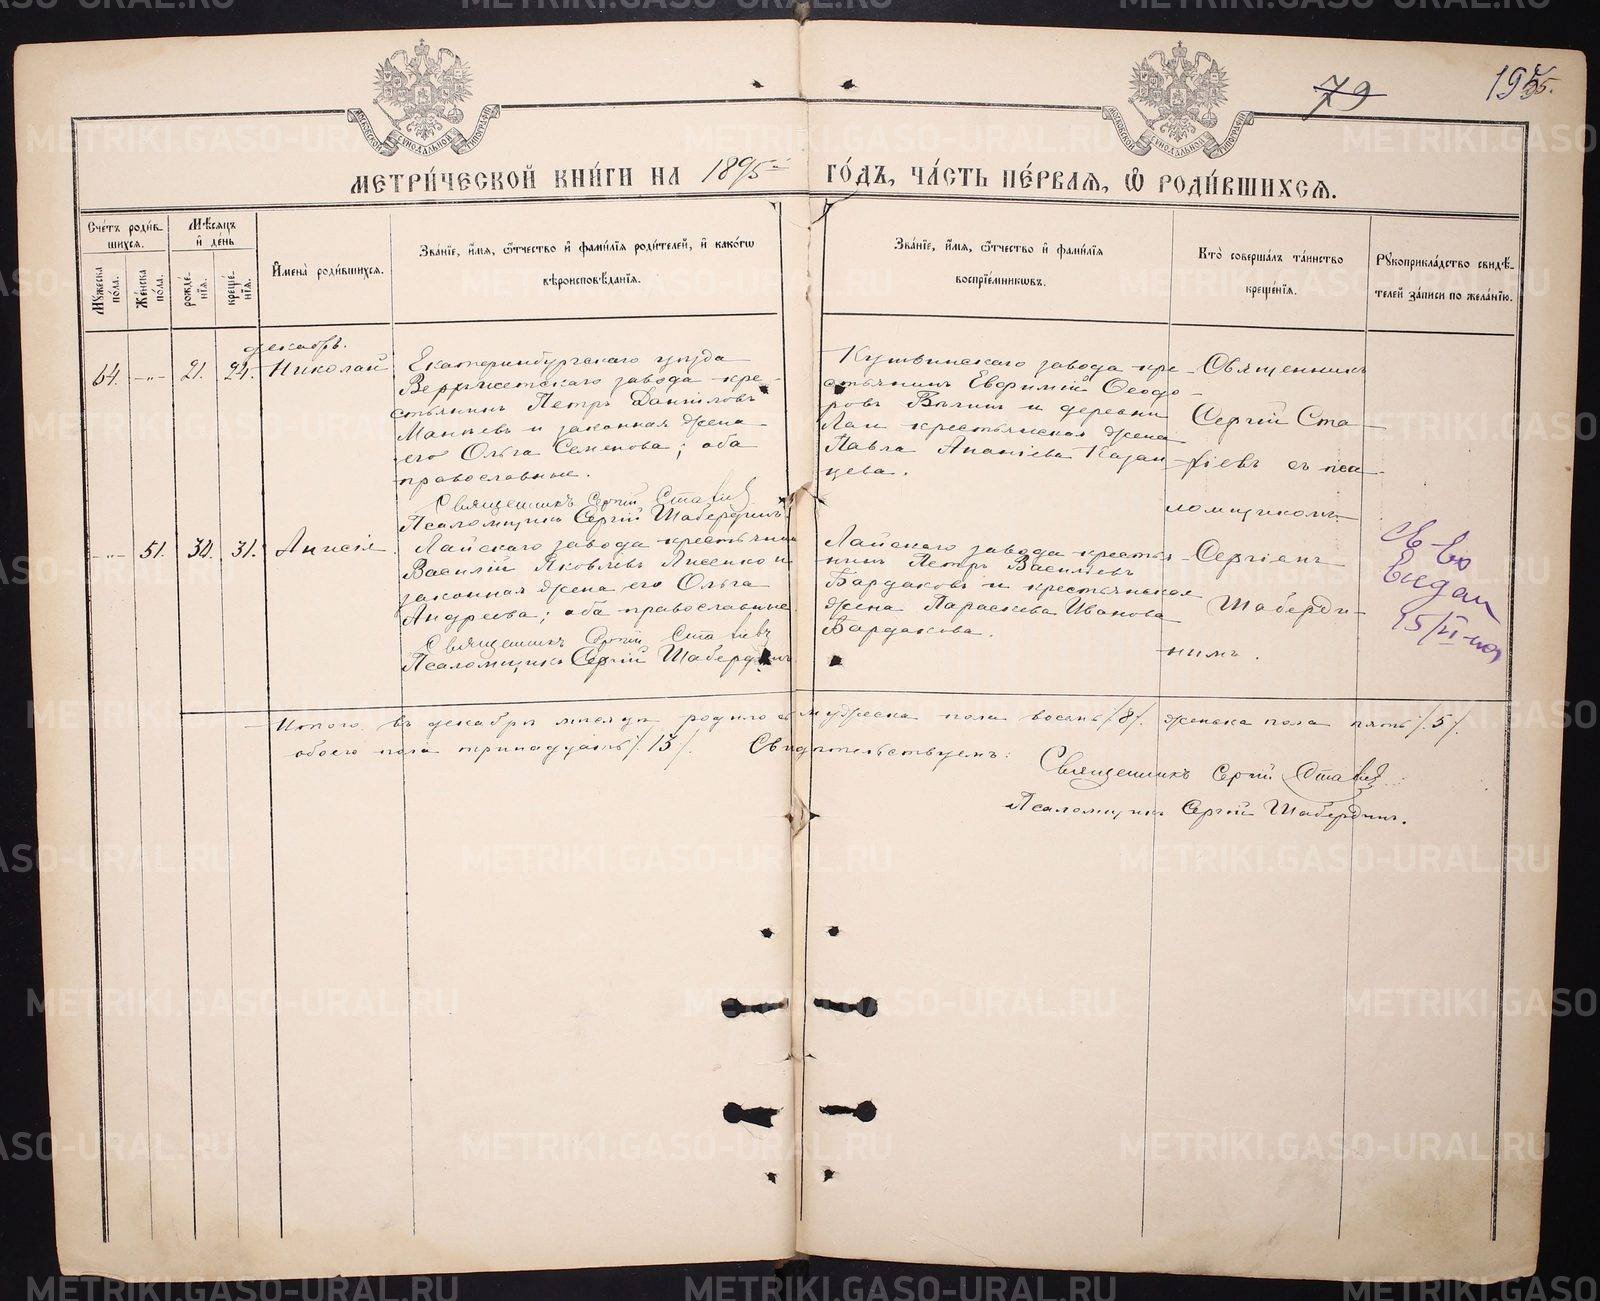 79
195.
МОСКОВСКОЙ СѴНОДАЛЬНОЙ ТИПОГРАФІИ
МОСКОВСКОЙ СѴНОДАЛЬНОЙ ТИПОГРАФІИ
МЕТРИ́ЧЕСКОЙ КНИ́ГИ НА 1895й ГО́ДЪ, ЧА́СТЬ ПЕ́РВАѦ, Ѿ РОДИ́ВШИХСѦ.
Сче́тъ роди́в-
шихся.
Мѣ́сяцъ
и҆ де́нь
Мꙋ́жеска по́ла.
Же́нска по́ла.
рожде́-
нїя.
креще́-
нїя.
И҆мена̀ роди́вшихся.
Зва́нїе, и҆́мя, ѻ҆́тчество и҆ фами́лїя роди́телей, и҆ како́гѡ
вѣроисповѣ́данїя.
Зва́нїе, и҆́мя, ѻ҆́тчество и҆ фами́лїя
воспрїе́мникѡвъ.
Кто̀ соверша́лъ та́инство
креще́нїя.
Рꙋкоприкла́дство свидѣ́-
телей за́писи по жела́нїю.
декабрь.
64. -„- 21. 24. Николай
Екатеринбургскаго уѣзда
Верхисетскаго завода кре-
стьянинъ Петръ Даниловъ
и законная жена
его Ольга Семенова; оба
православные.
Священникъ Сергій Стафіев
Псаломщикъ Сергій Шабердинъ
Кушвинскаго завода кре-
стьянинъ Евфимій Ѳеодо-
ровъ и деревни
Лаи крестьянская жена
Павла Ананіева Казан-
цева.
Священникъ
Сергій Ста-
фіевъ съ пса-
ломщикомъ
-„- 51. 30. 31. Анисія
Лайскаго завода крестьянинъ
Василій Яковлевъ Лисенко и
законная жена его Ольга
Андреева; оба православные
Священникъ Сергій Стафіевъ
Псаломщикъ Сергій Шабердинъ
Лайскаго завода крестья-
нинъ Петръ Васильевъ
Бардаковъ и крестьянская
жена Параскева Иванова
Бардакова.
Сергіемъ
Шаберди-
нымъ.
Св-во
выдан
15/VI
Итого въ декабрѣ мѣсяцѣ родилось мужеска пола восемь /8/. женска пола пять /5/.
обоего пола тринадцать /13/. Свидѣтельствуемъ:
Священникъ Сергій Стафіев
Псаломщикъ Сергій Шабердинъ.
METRIKI.GASO-URAL.RU